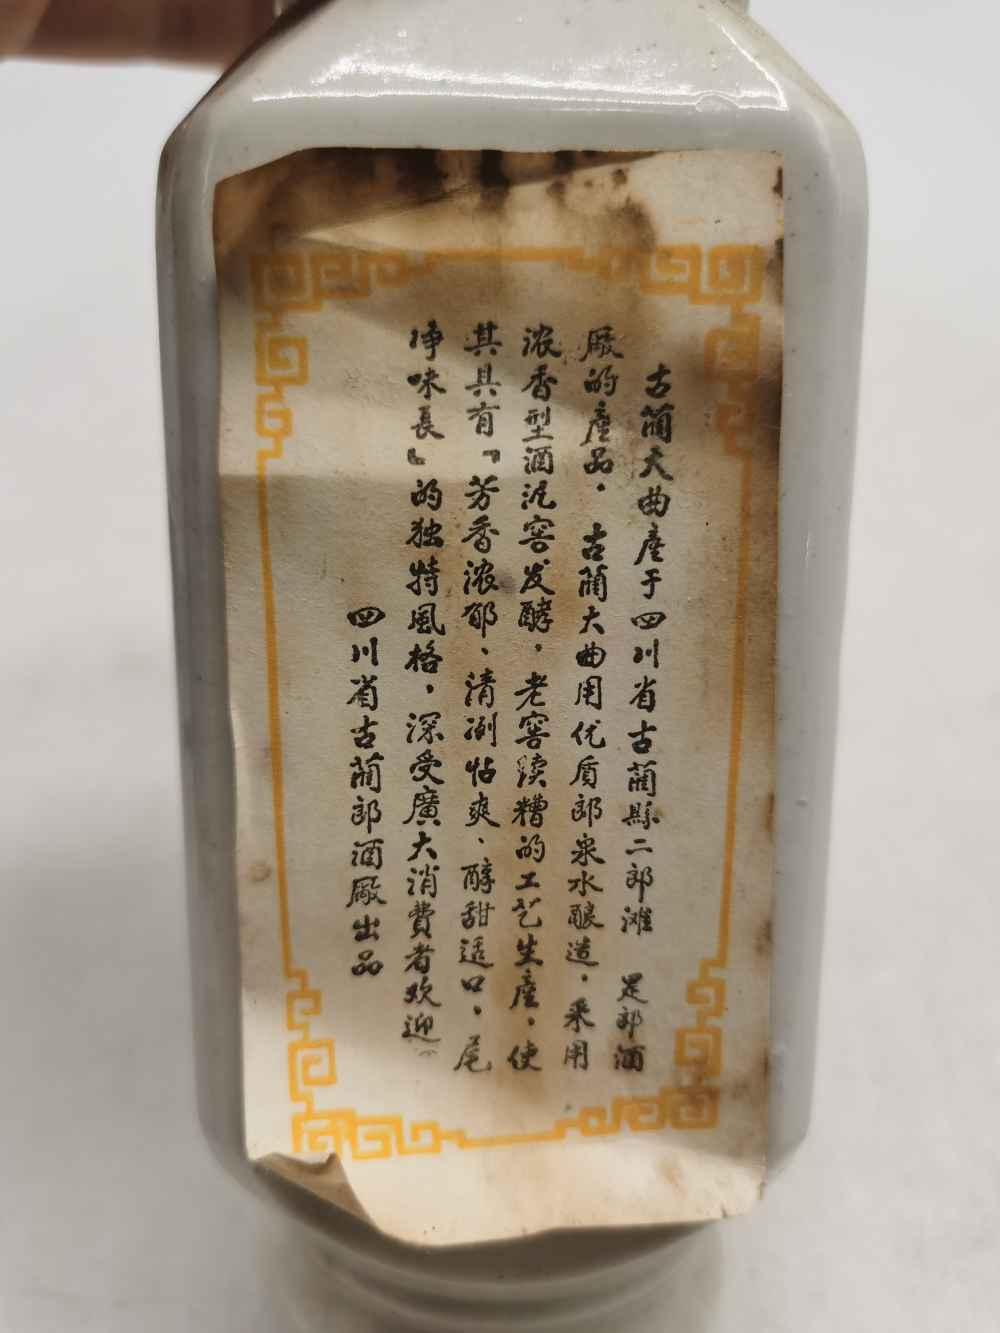 古藺大曲產于四川省古藺縣二郎滩 是郎酒
厰的產品。古藺大曲用优盾郎泉水酿造。采用
浓香型酒泥窖发酵，老窖续糟的工艺生產，使
其具有『芳香浓郁、清冽怗爽、醇甜适口，尾
净味長』的独特風格，深受廣大消費者欢迎。
四川省古藺郎酒厰出品